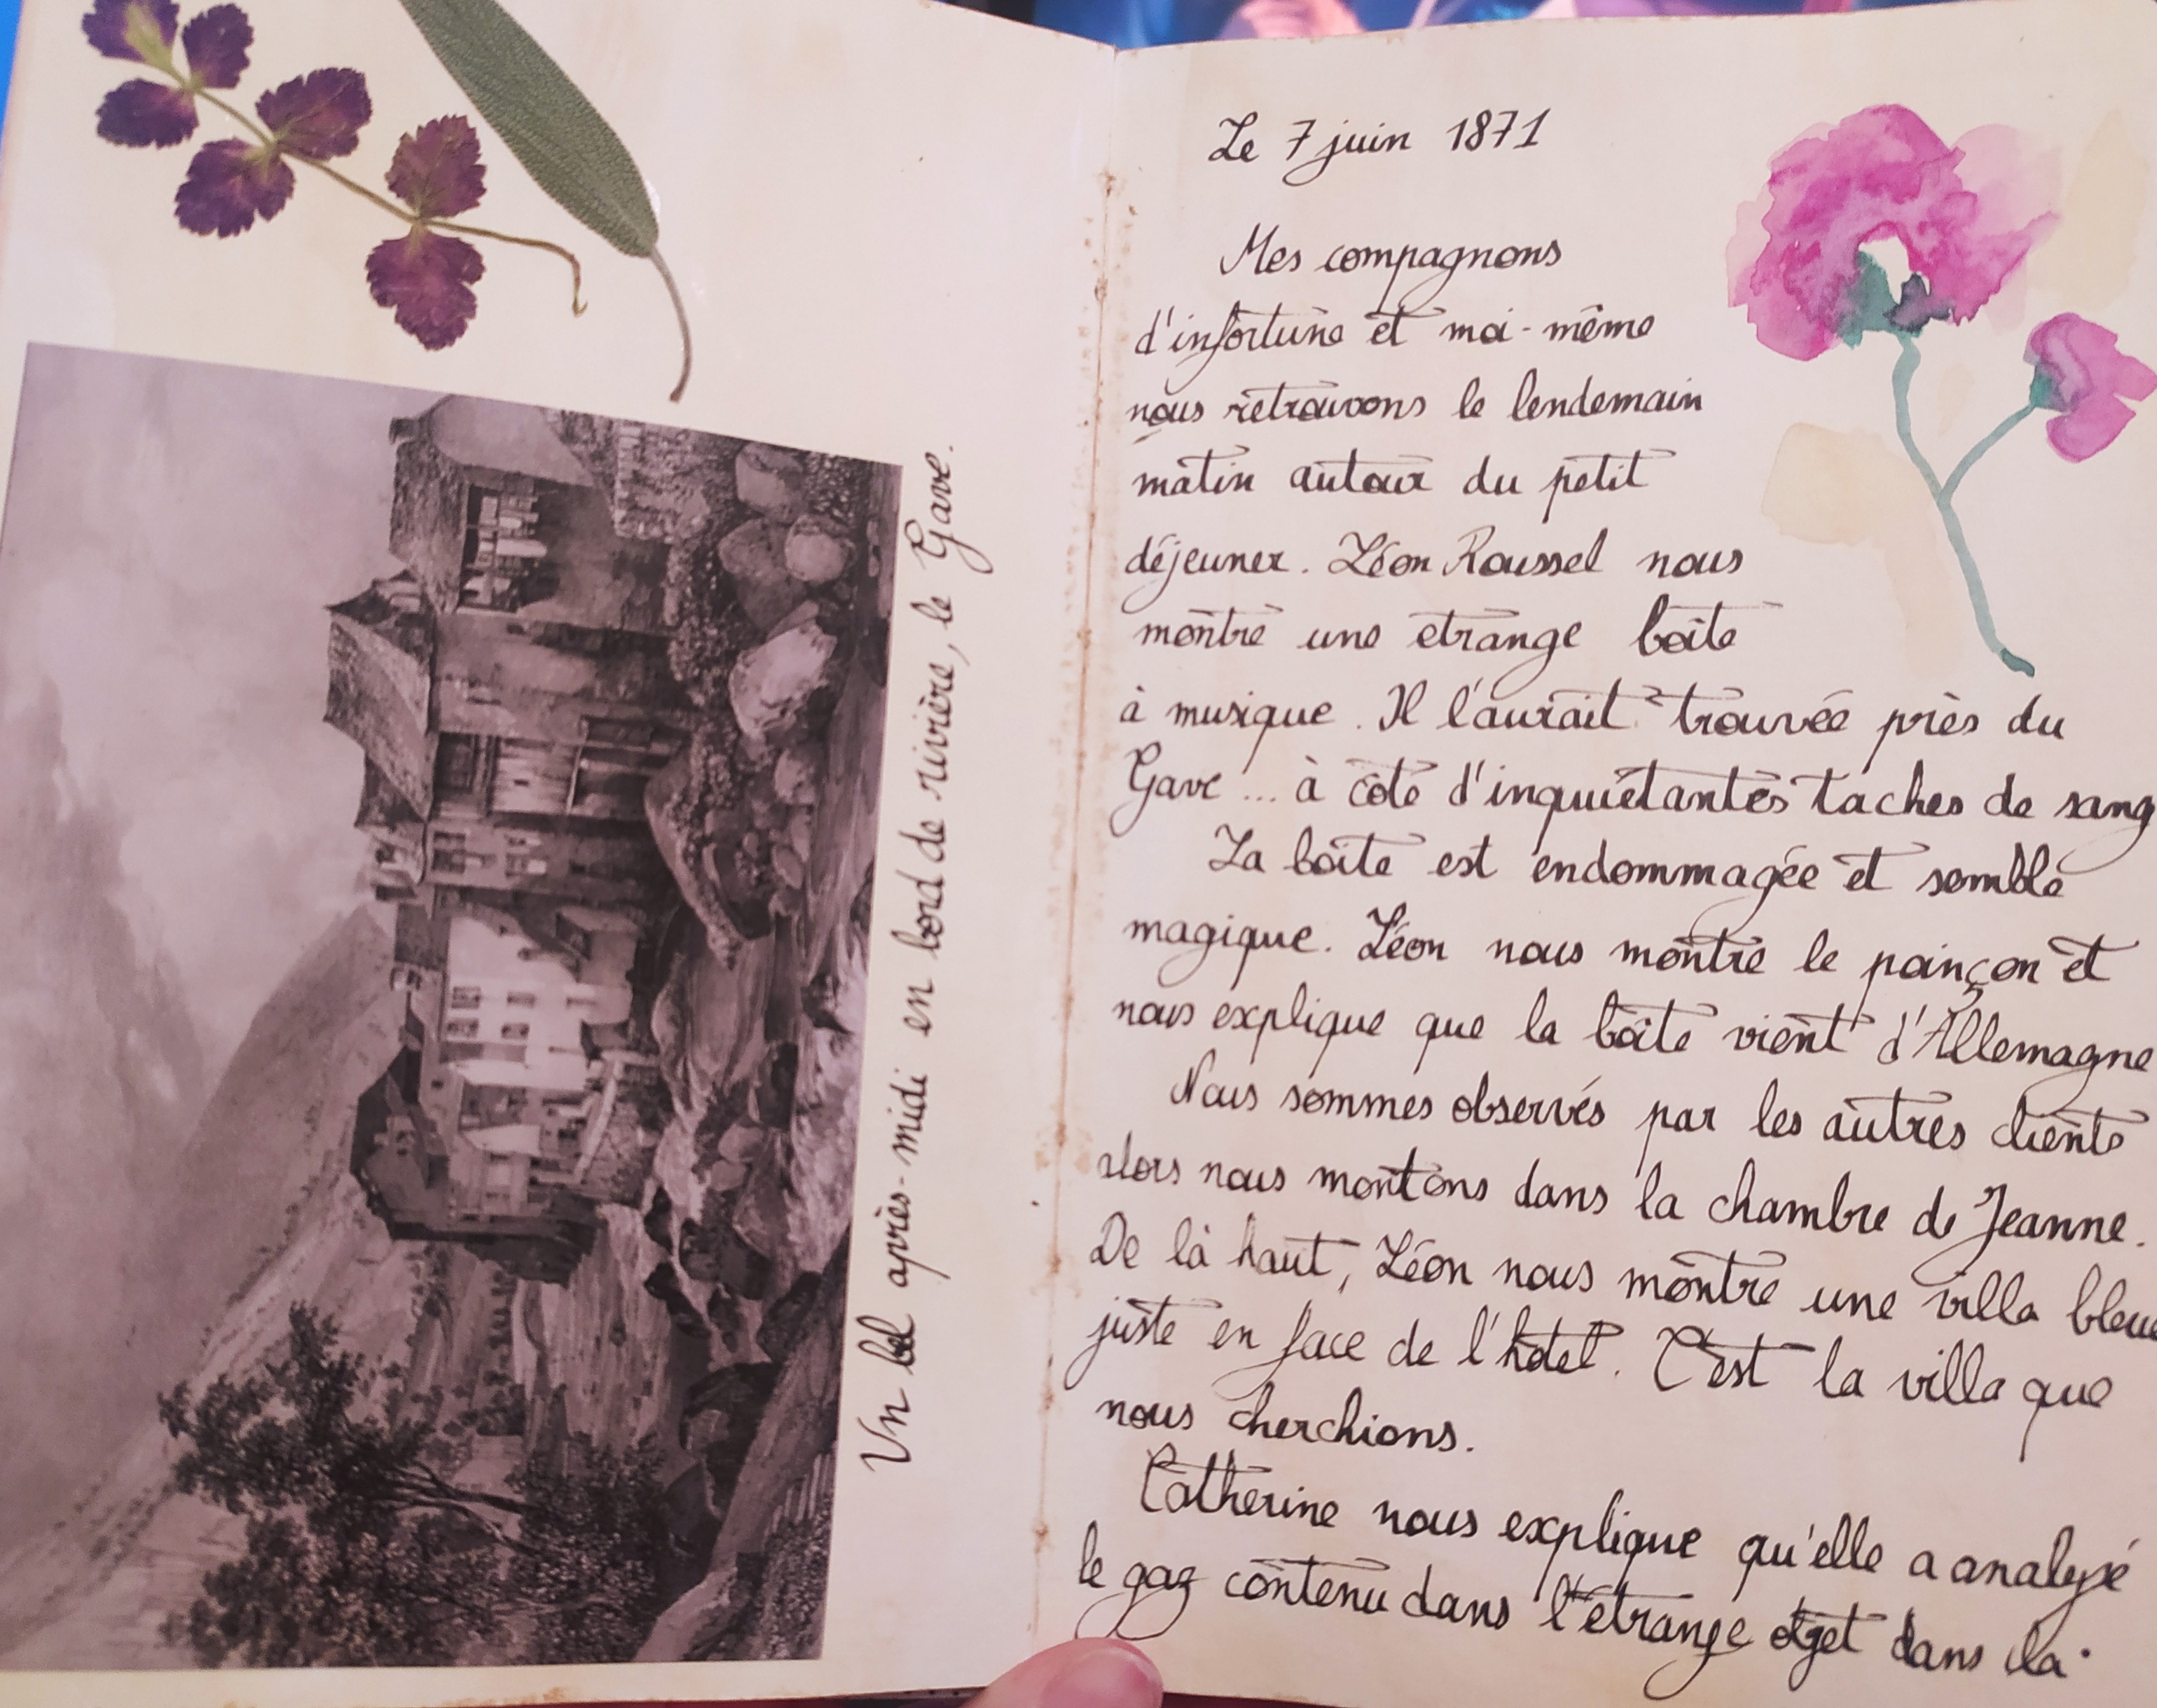 Un bel après-midi en bord de rivière, le Gave.
Le 7 juin 1871
Mes compagnons
d'infortune et moi-même
nous retrouvons le lendemain
matin autour du petit
déjeuner. Léon Roussel nous
montre une étrange boîte
à musique. Il l'aurait trouvée près du
Gave ... à côté d'inquiétantes taches de sang
La boîte est endommagée et semble
magique. Léon nous montre le poinçon et
nous explique que la boîte vient d'Allemagne
Nous sommes observés par les autres clients
alors nous montons dans la chambre de Jeanne.
De là haut, Léon nous montre une villa bleue
juste en face de l'hôtel. C'est la villa que
nous cherchions.
Catherine nous explique qu'elle a analysé
le gaz contenu dans l'étrange objet dans la